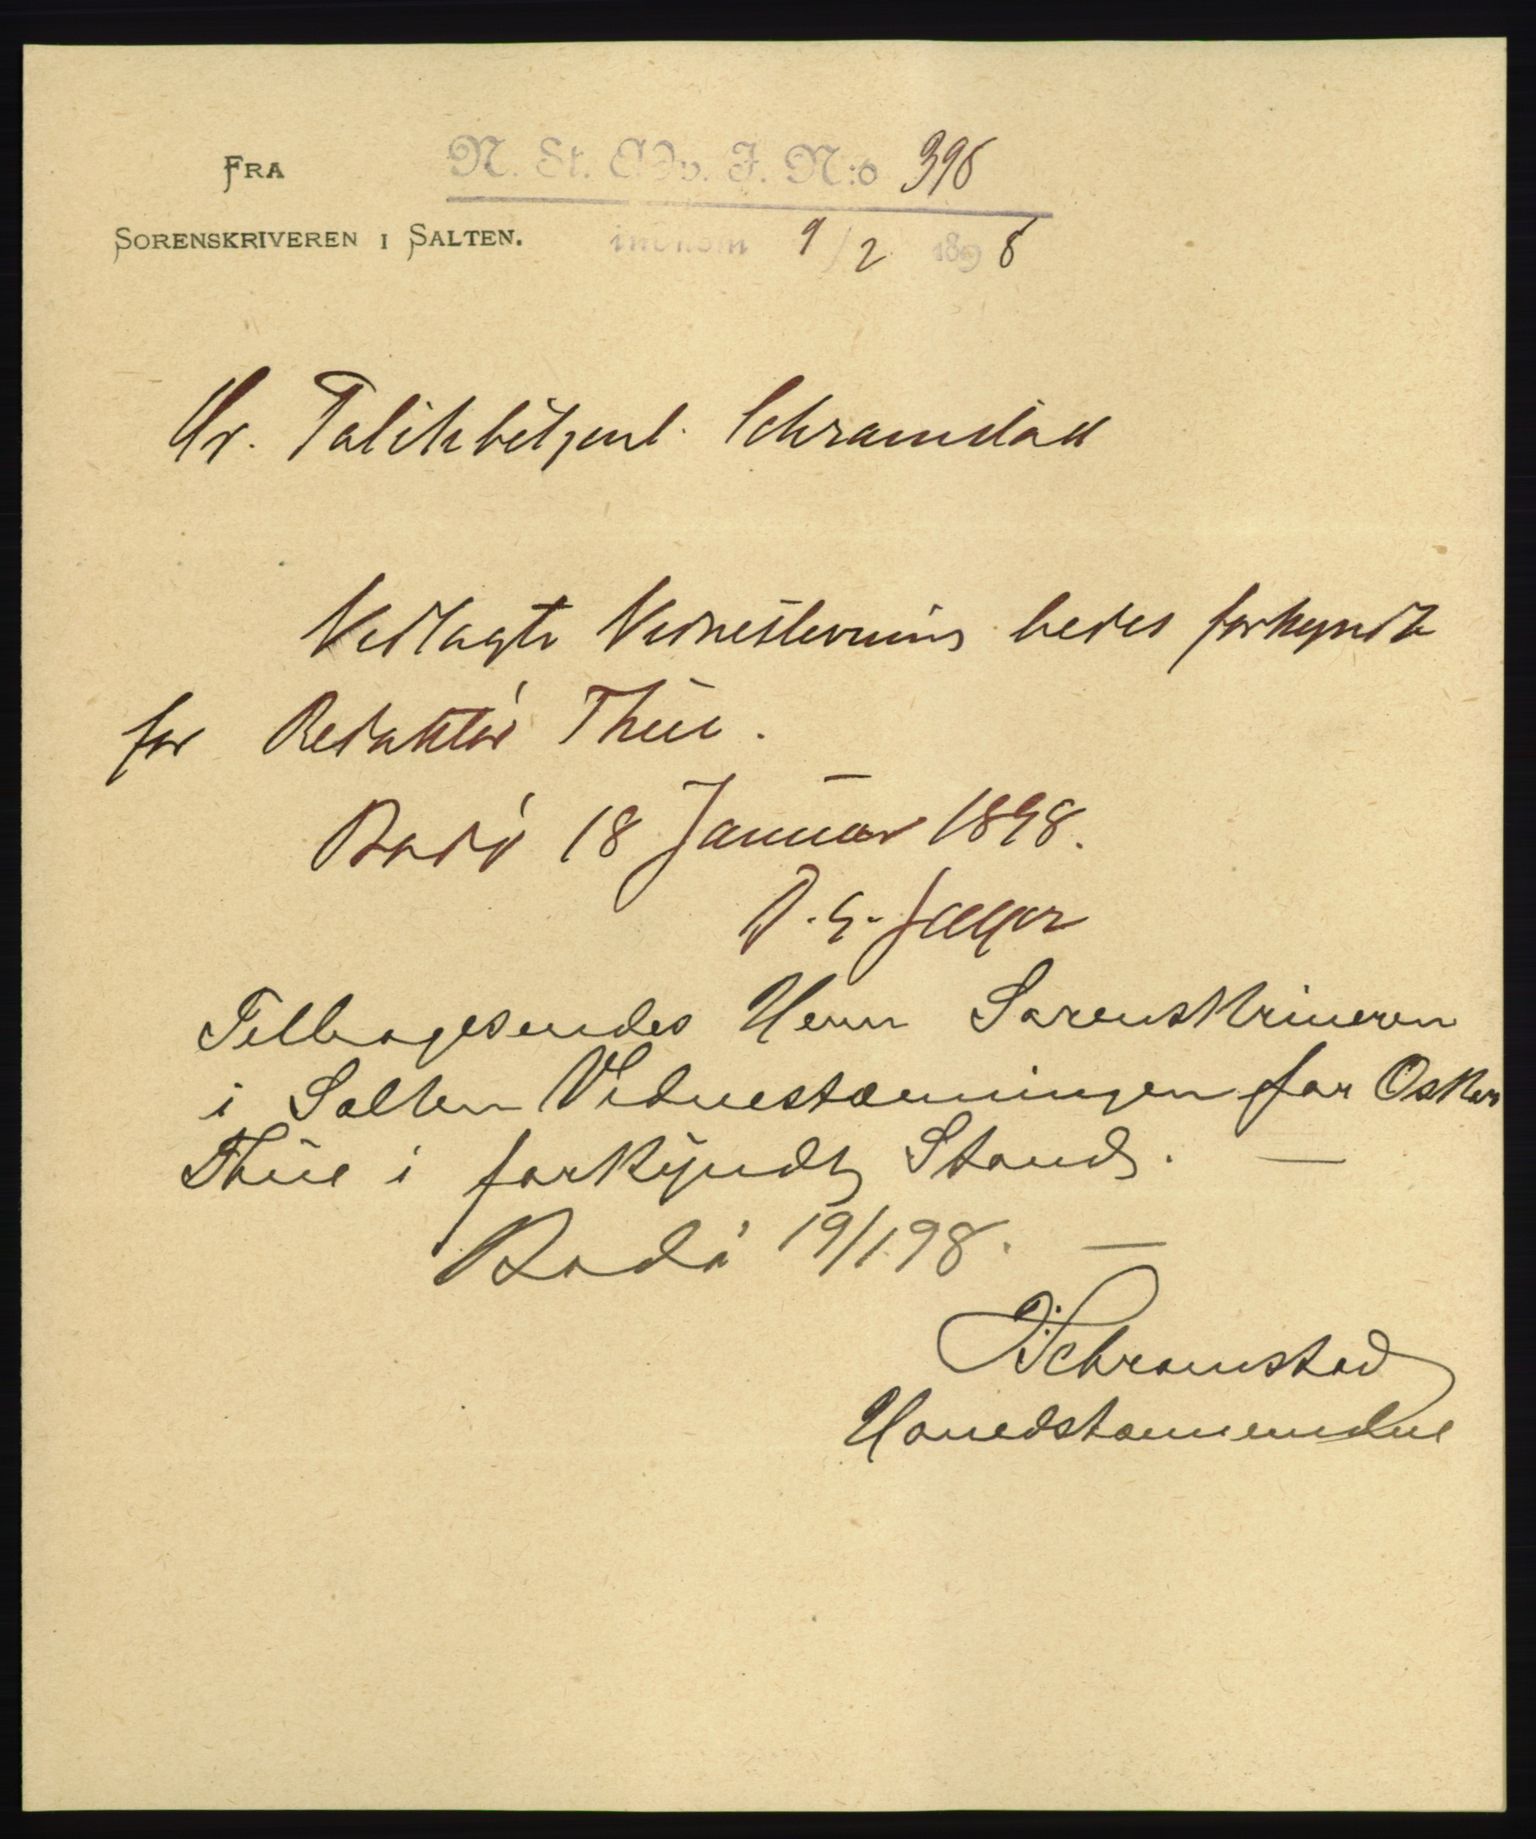 FRA
SORENSKRIVEREN I SALTEN.
N. St. Adv. J. N:o 396
indkom 9/2 1898
Hr. Politibetjent Schramstad
Vedlagte Vidnestevning bedes forkyndt
for Redaktör Thüe.
Bodö 18 Januar 1898.
Jæger
Tilbagesendes Herrn Sorenskriveren
i Salten Vidnestævningen for Oskar
Thüe i forkyndt Stand. —
Bodö 19/1 98. —
Schramstad
Hovedstævnevidne